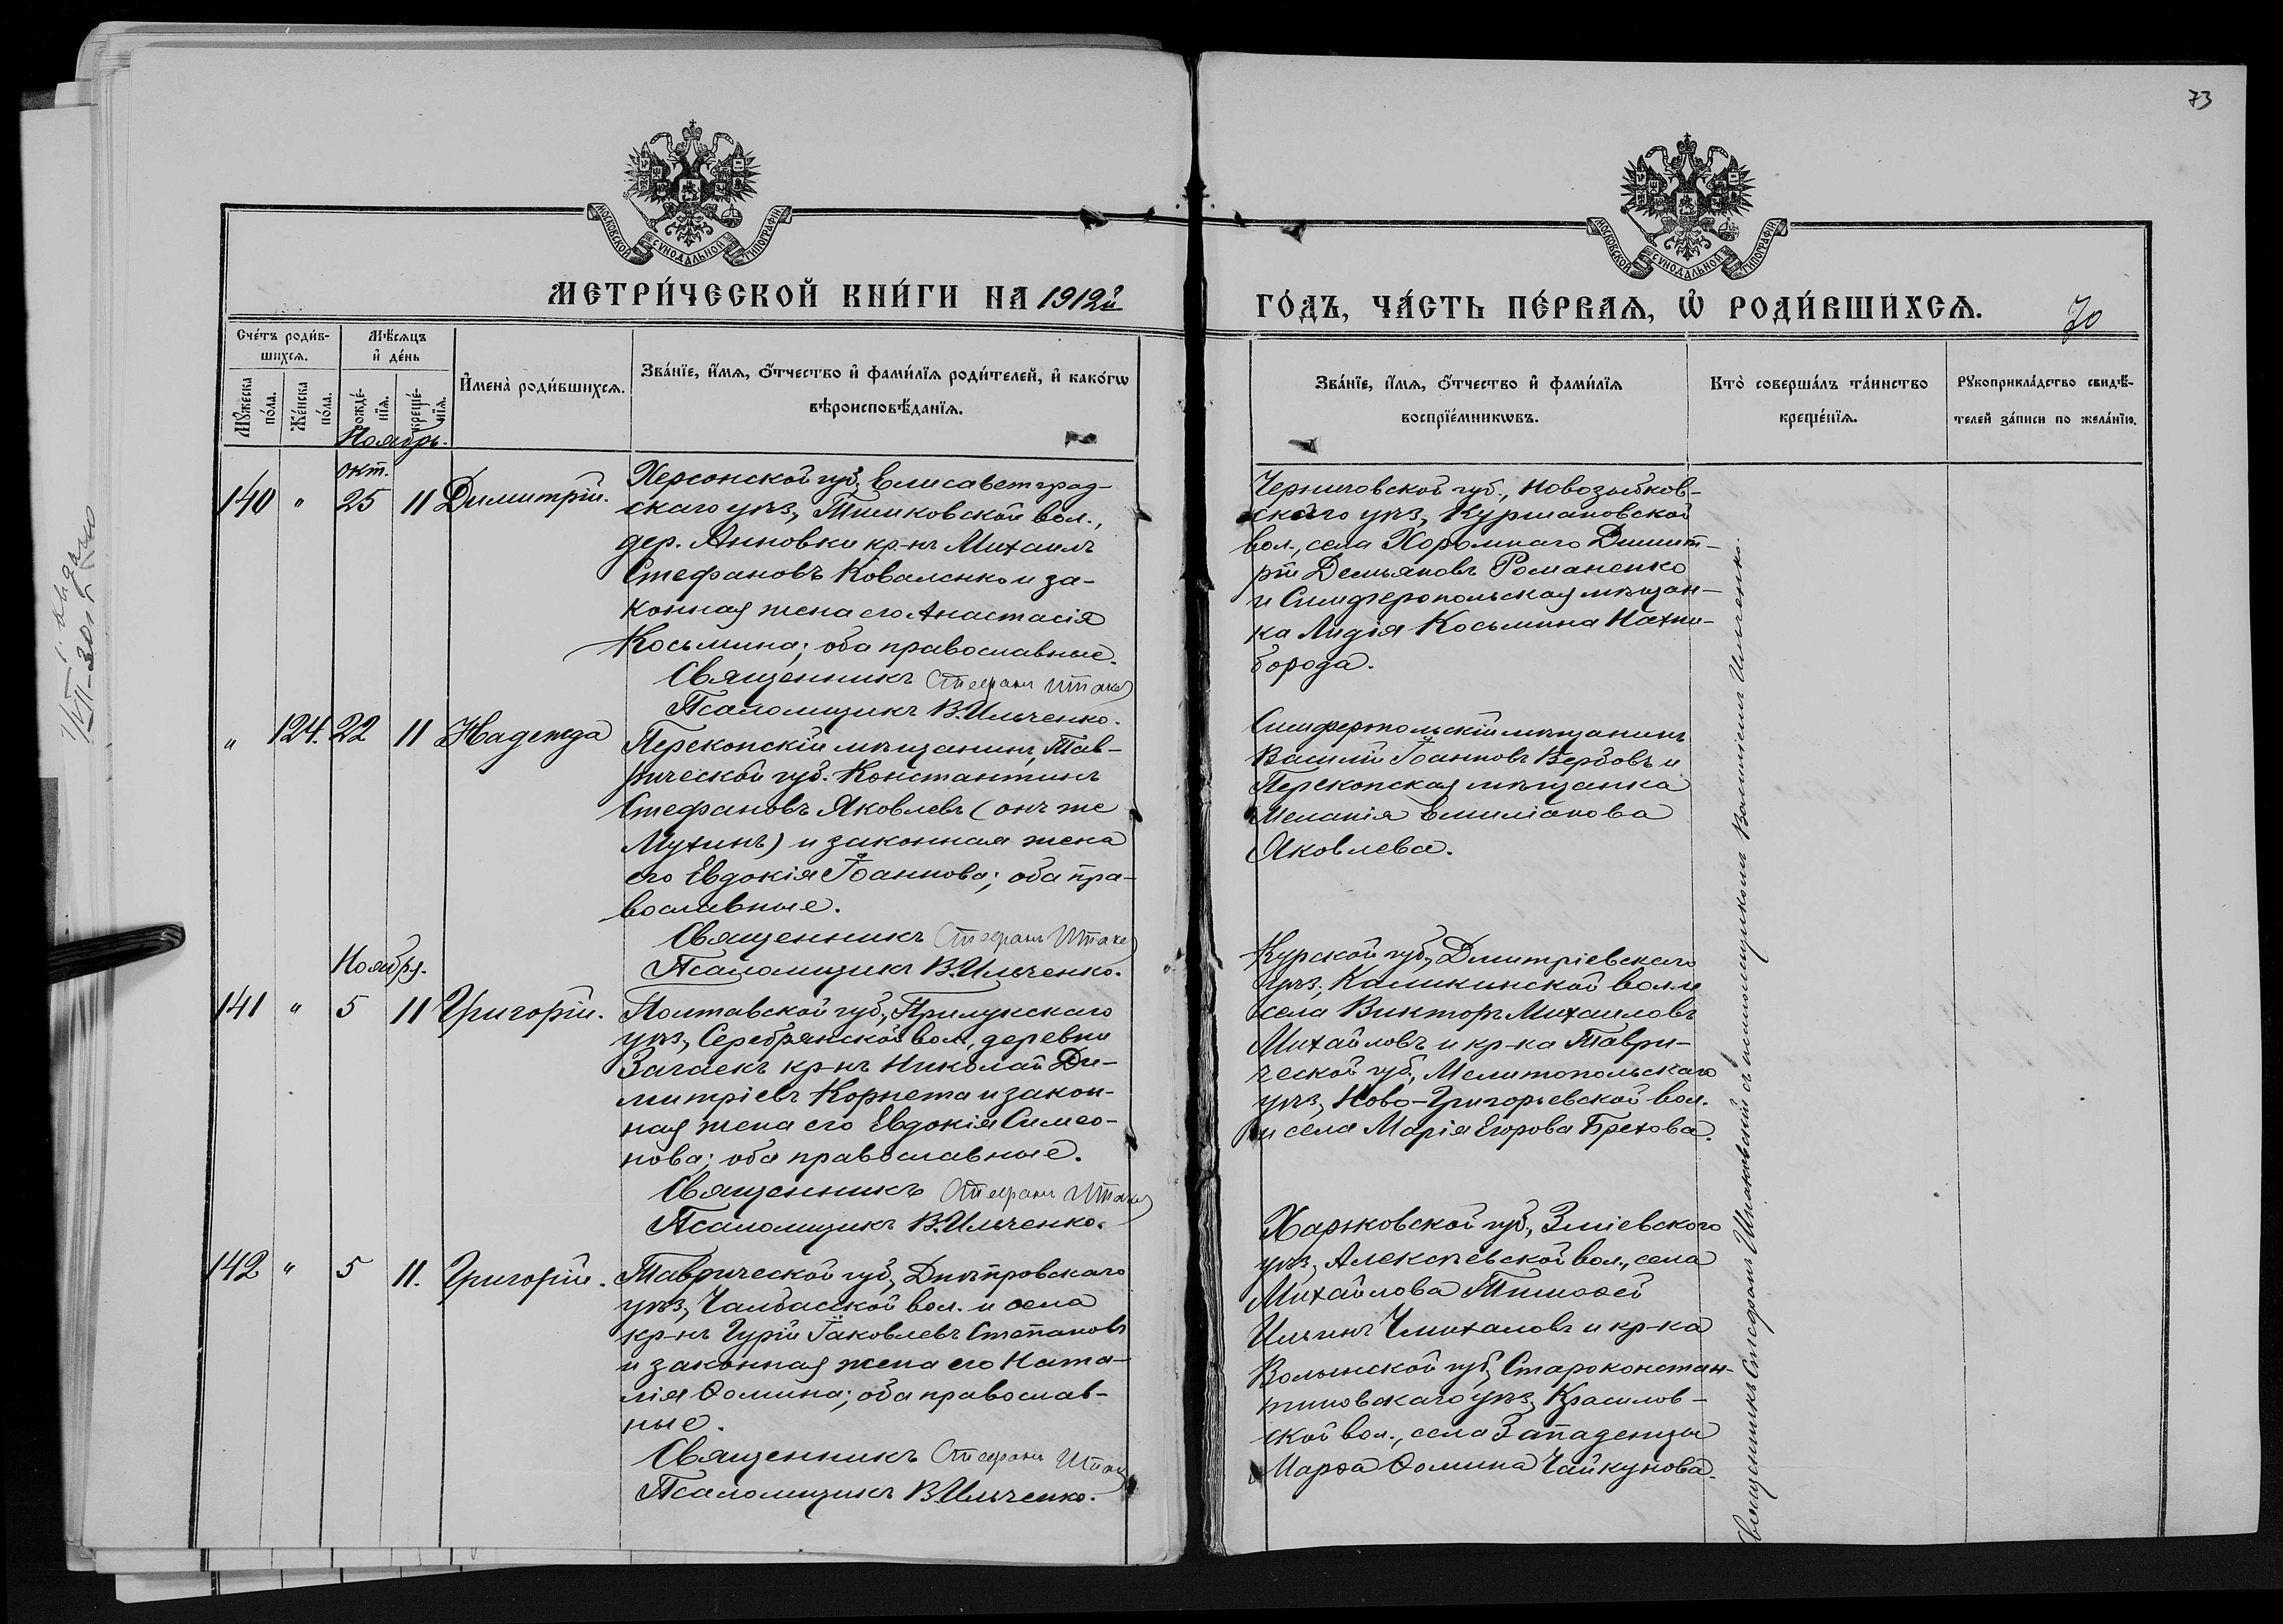 73
МОСКОВСКОЙ СѴНОДАЛЬНОЙ ТИПОГРАФІИ
МОСКОВСКОЙ СѴНОДАЛЬНОЙ ТИПОГРАФІИ
МЕТРИ́ЧЕСКОЙ КНИ́ГИ НА 1912й
ГО́ДЪ, ЧА́СТЬ ПЕ́РВАѦ, Ѡ҆ РОДИ́ВШИХСѦ.
70
Сче́тъ роди́в-
шихсѧ.
Мѣ́сѧцъ
и҆ де́нь
Мꙋ́жеска
по́ла.
Же́нска
по́ла.
рожде́-
нїѧ.
креще́-
нїѧ.
И҆мена̀ роди́вшихсѧ.
Зва́нїе, и҆́мѧ, ѻ҆́тчество и҆ фами́лїѧ роди́телей, и҆ како́гѡ
вѣроисповѣ́данїѧ.
Зва́нїе, и҆́мѧ, ѻ҆́тчество и҆ фами́лїѧ
воспрїе́мникѡвъ.
Кто̀ соверша́лъ та́инство
креще́нїѧ.
Рꙋкоприкла́дство свидѣ́-
телей за́писи по жела́нїю.
Ноябрь.
окт.
140 " 25 11 Димитрій.
Херсонской губ., Елисаветград-
скаго уѣз., Тишковской вол.,
дер. Анновки кр-нъ Михаилъ
Стефановъ Коваленко и за-
конная жена его Анастасія
Косьмина; оба православные.
Священникъ Стефанъ
Псаломщикъ В. Ильченко.
Черниговской губ., Новозыбков-
скаго уѣз.,
вол., села Хоромнаго Димит-
рій Демьяновъ Романенко
и Симферопольская мѣщан-
ка Лидія Косьмина Нахни-
борода.
" 124. 22 11 Надежда
Перекопскій мѣщанинъ, Тав-
рической губ. Константинъ
Стефановъ Яковлевъ (онъ же
Мухинъ) и законная жена
его Евдокія Іоаннова; оба пра-
вославные.
Священникъ Стефанъ
Псаломщикъ В. Ильченко.
Симферопольскій мѣщанинъ
Василій Іоанновъ Вербовъ и
Перекопская мѣщанка
Меланія Емиліанова
Яковлева.
Ноября.
141 " 5 11 Григорій.
Полтавской губ., Прилукскаго
уѣз., Серебрянской вол., деревни
Загаекъ кр-нъ Николай Ди-
митріевъ Корнета и закон-
ная жена его Евдокія Симео-
нова; оба православные.
Священникъ Стефанъ
Псаломщикъ В. Ильченко.
Курской губ., Дмитріевскаго
уѣз., Каликинской вол. и
села Викторъ Михаиловъ
Михайловъ и кр-ка Таври-
ческой губ., Мелитопольскаго
уѣз., Ново-Григорьевской вол.
и села Марія Егорова Брехова.
142 " 5 11. Григорій.
Таврической губ., Днѣпровскаго
уѣз., Чалбасской вол. и села
кр-нъ Гурій Іаковлевъ Степановъ
и законная жена его Ната-
лія Ѳомина; оба православ-
ные.
Священникъ Стефанъ
Псаломщикъ В. Ильченко.
Харьковской губ., Зміевского
уѣз., Алексѣевской вол., села
Михайлова Тимоѳей
Ильинъ и кр-ка
Волынской губ., Староконстан-
тиновскаго уѣз., Красилов-
ской вол., села Западенцы
Марѳа Ѳомина Чайкунова.
Священникъ Стефанъ съ псаломщикомъ Ильченко.